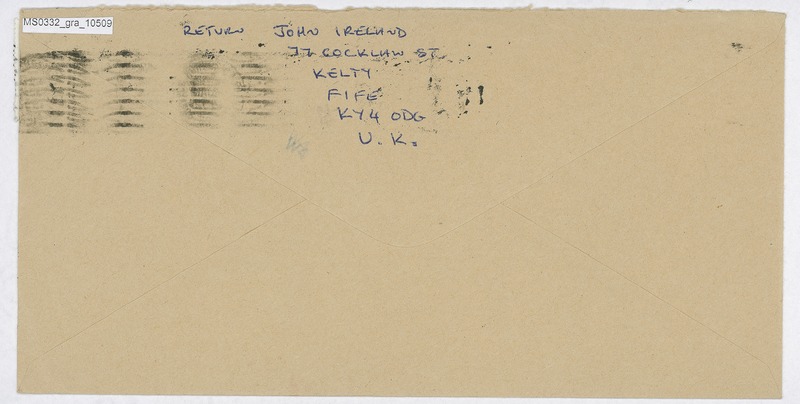 MS0332_gra_10509
RETURN JOHN IRELAND
77 COCKLAW ST
KELTY
FIFE
KY4 0DG
U.K.